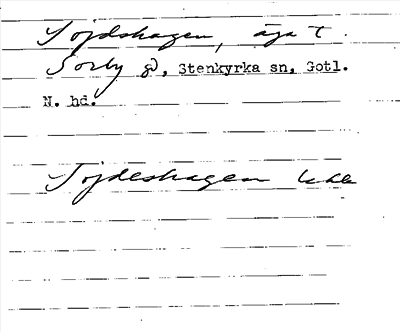 Töjdshagen, äga t.
Sorby gd, Stenkyrka sn, Gotl.
N. hd.
Töjdeshagen